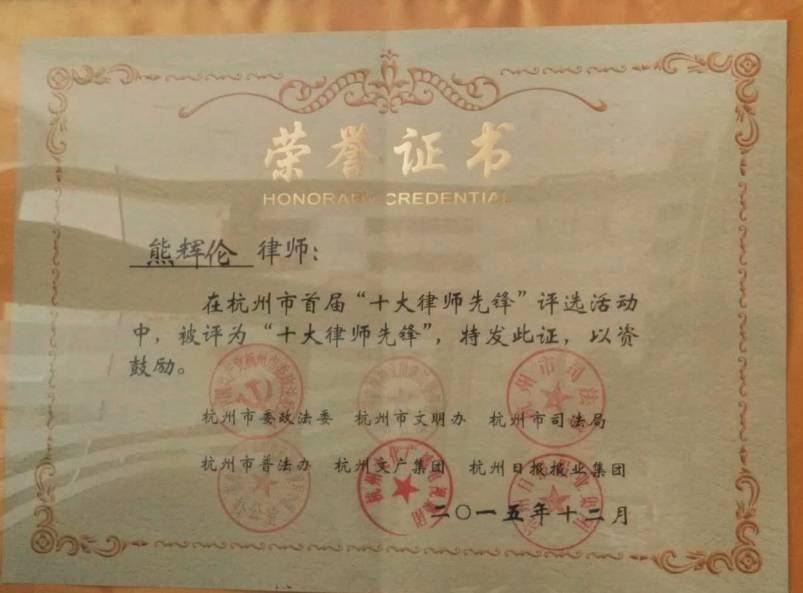 荣誉证书
HONORARY CREDENTIAL
熊辉伦 律师：
在杭州市首届“十大律师先锋”评选活动
中，被评为“十大律师先锋”，特发此证，以资
鼓励。
杭州市委政法委 杭州市文明办 杭州市司法局
杭州市普法办 杭州文广集团 杭州日报报业集团
二〇一五年十二月